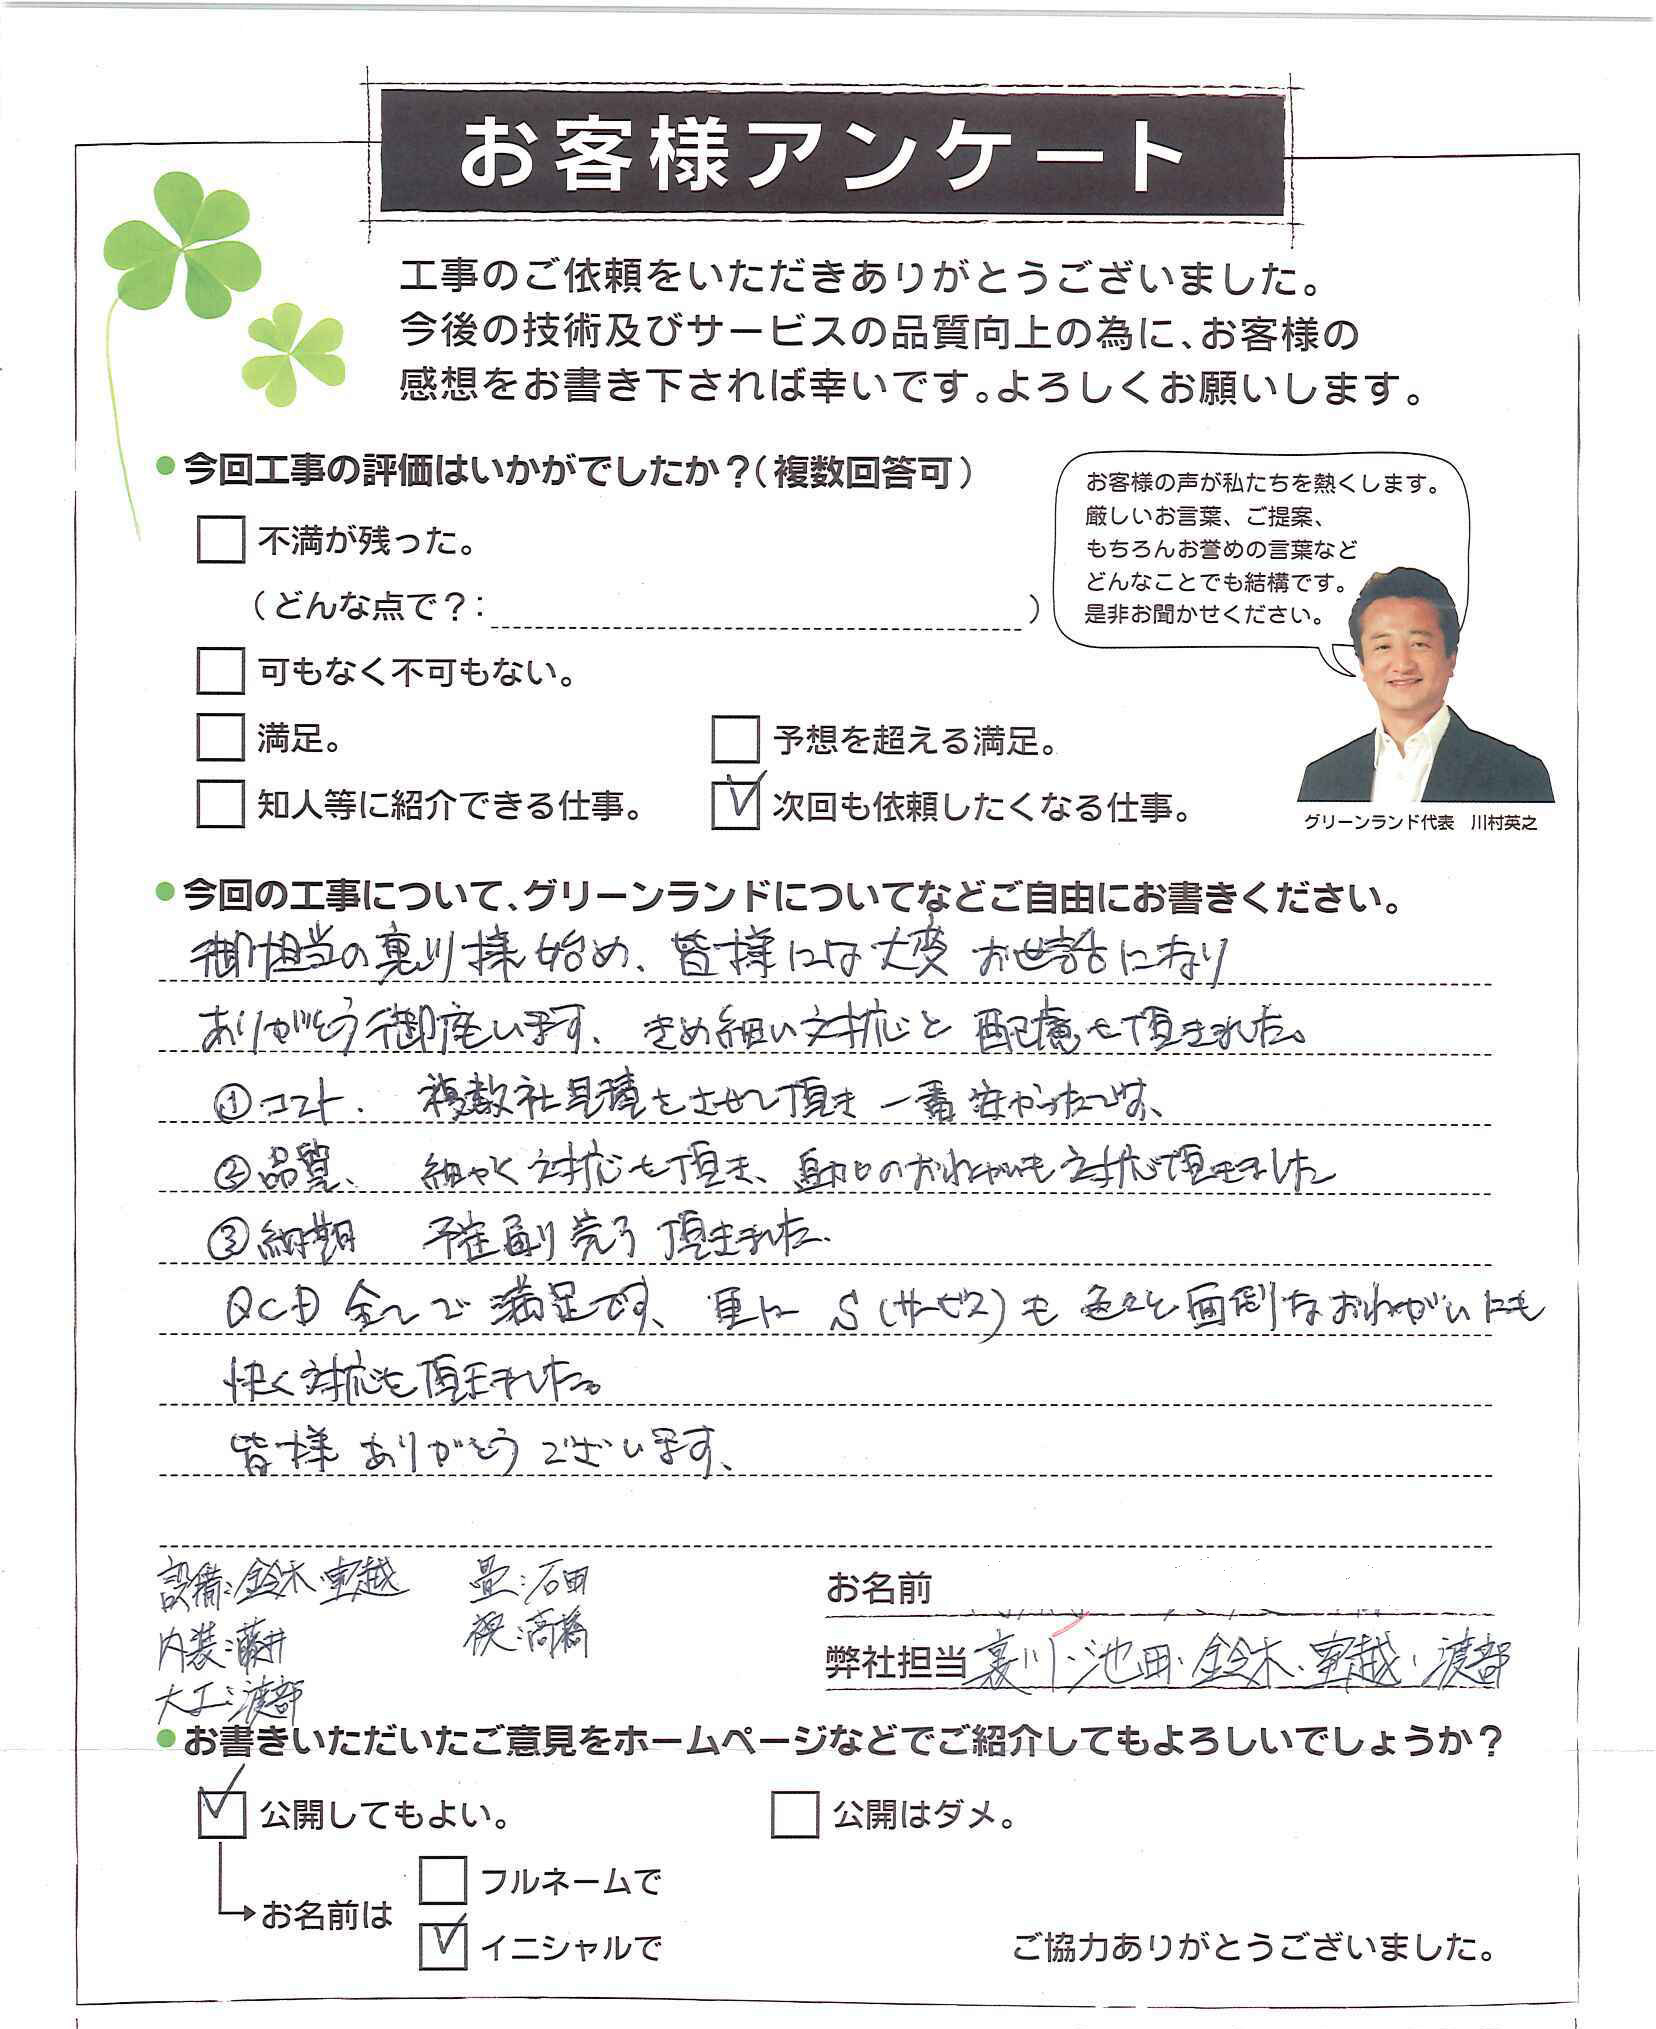 お客様アンケート
工事のご依頼をいただきありがとうございました。
今後の技術及びサービスの品質向上の為に、お客様の
感想をお書き下されば幸いです。よろしくお願いします。
●今回工事の評価はいかがでしたか？（複数回答可）
不満が残った。
（どんな点で？： ）
可もなく不可もない。
満足。
予想を超える満足。
知人等に紹介できる仕事。
次回も依頼したくなる仕事。
お客様の声が私たちを熱くします。
厳しいお言葉、ご提案、
もちろんお誉めの言葉など
どんなことでも結構です。
是非お聞かせください。
グリーンランド代表 川村英之
●今回の工事について、グリーンランドについてなどご自由にお書きください。
御担当の裏川様始め、皆様には大変お世話になり
ありがとう御座います、きめ細い対応と配慮を頂きました。
①コスト. 複数社見積をさせて頂き一番安かったです、
②品質、 細やく対応を頂き、追加のおねがいも対応頂きました
③納期 予定通り完了頂きました.
QCD全てで満足です、更に S（サービス）も色々と面倒なおねがいにも
快く対応を頂きました。
皆様ありがとうございます、
設備：鈴木・室越
畳：石田
内装：藤井
襖：高橋
大工：渡部
お名前
弊社担当 裏川・池田・鈴木・室越・渡部
●お書きいただいたご意見をホームページなどでご紹介してもよろしいでしょうか？
公開してもよい。
公開はダメ。
お名前は
フルネームで
イニシャルで
ご協力ありがとうございました。